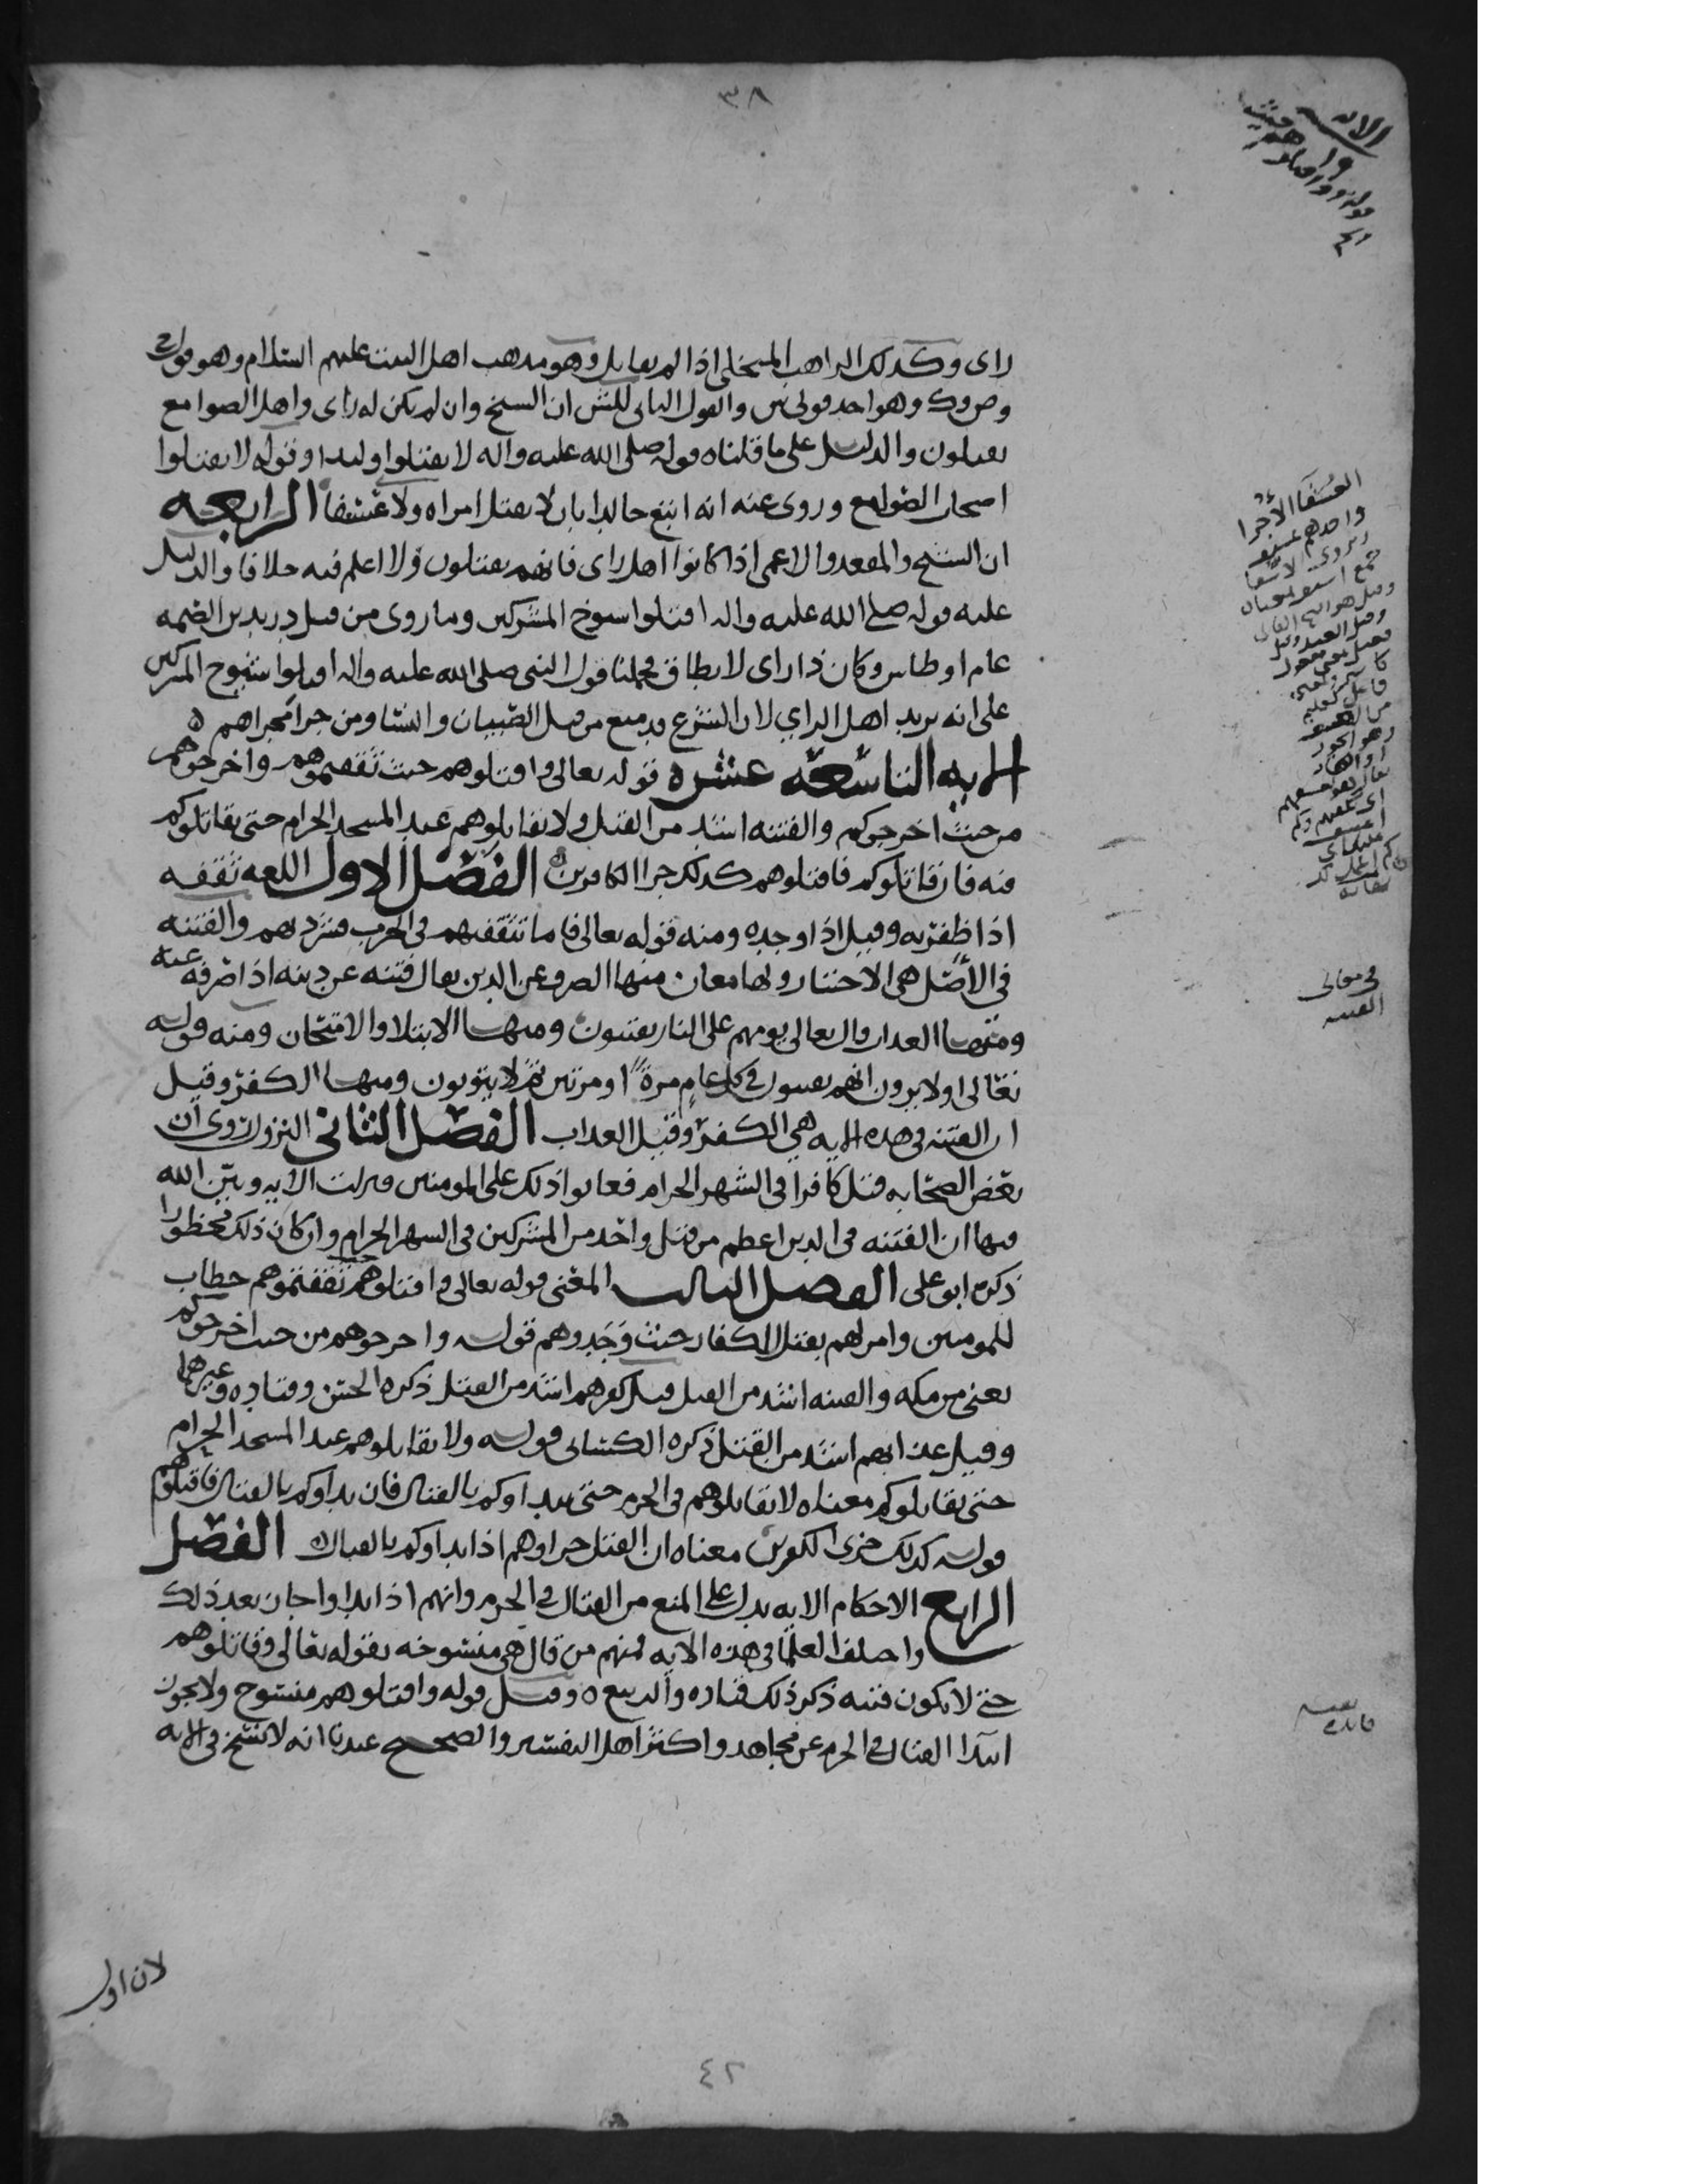 ٣٨
الايه
١٩
راى وكذلك الراهب المتخلي اذا لم يقاتل وهو مذهب اهل البيت عليهم السلام وهو قول ح
وص وك وهو احد قولي ش والقول الثاني للش ان الشيخ وان لم يكن له راى واهل الصوامع
يقتلون والدليل على ما قلناه قوله صلى الله عليه واله لا تقتلوا وليدا وقوله لا تقتلوا
اصحاب الصوامع وروى عنه انه اتبع خالدا بان لا يقتل امراه ولا عسفا الرابعه
ان الشيخ والمقعد والاعمى اذا كانوا اهل راى فانهم يقتلون ولا اعلم فيه خلافا والدليل
عليه قوله صلى الله عليه واله اقتلوا شيوخ المشركين وما روى من قتل دريد بن الصمه
عام اوطاس وكان ذا راى لا يطاق فحملنا قول النبي صلى الله عليه واله اقتلوا شيوخ المشركين
على انه يريد اهل الراي لان الشرع قد منع من قتل الصبيان والنسا ومن جرا مجراهم ه
الايه التاسعه عشره قوله تعالى واقتلوهم حيث ثقفتموهم واخرجوهم
من حيث اخرجوكم والفتنه اشد من القتل ولا تقاتلوهم عند المسجد الحرام حتى يقاتلوكم
فيه فان قاتلوكم فاقتلوهم كذلك جزا الكافرين ه الفصل الاول اللغه ثقفه
اذا ظفر به وقيل اذا وجده ومنه قوله تعالى فاما تثقفنهم في الحرب فشرد بهم والفتنه
في الاصل هي الاختبار ولها معان منها الصرف عن الدين يقال فتنه عن دينه اذا صرفه عنه
ومنها العذاب قال تعالى يوم هم على النار يفتنون ومنها الابتلا والامتحان ومنه قوله
تعالى اولا يرون انهم يفتنون في كل عام مرة او مرتين ثم لا يتوبون ومنها الكفر وقيل
ان الفتنه في هذه الايه هي الكفر وقيل العذاب الفصل الثاني النزول روى ان
بعض الصحابه قتل كافرا في الشهر الحرام فعابوا ذلك على المومنين فنزلت الايه وبين الله
فيها ان الفتنه في الدين اعظم من قتل واحد من المشركين في الشهر الحرام وان كان ذلك محظورا
ذكره ابو على الفصل الثالث المعنى قوله تعالى واقتلوهم حيث ثقفتموهم خطاب
للمومنين وامر لهم بقتل الكفار حيث وجدوهم قوله واخرجوهم من حيث اخرجوكم
يعني من مكه والفتنه اشد من القتل قيل كفرهم اشد من القتل ذكره الحسن وقتاده وغيرهما
وقيل عذابهم اشد من القتل ذكره الكسائى قوله ولا تقاتلوهم عند المسجد الحرام
حتى يقاتلوكم معناه لا تقاتلوهم في الحرم حتى يبداوكم بالقتال فان بداوكم بالقتال فاقتلوهم
قوله كذلك جزى الكفرين معناه ان القتل جزاوهم اذا بداوكم بالقتال ه الفصل
الرابع الاحكام الايه تدل على المنع من القتال في الحرم وانهم اذا بداوا جاز بعد ذلك
واختلف العلما في هذه الايه فمنهم من قال هي منسوخه بقوله تعالى وقاتلوهم
حتى لا تكون فتنه ذكر ذلك قتاده والربيع ه وقيل قوله واقتلوهم منسوخ ولا يجوز
ابتدا القتال في الحرم عن مجاهد واكثر اهل التفسير والصحيح عندنا انه لا نسخ في الايه
العسفا الأجرا
واحدهم عسيف
في معاني
الفتنه
لان اول
٤٢